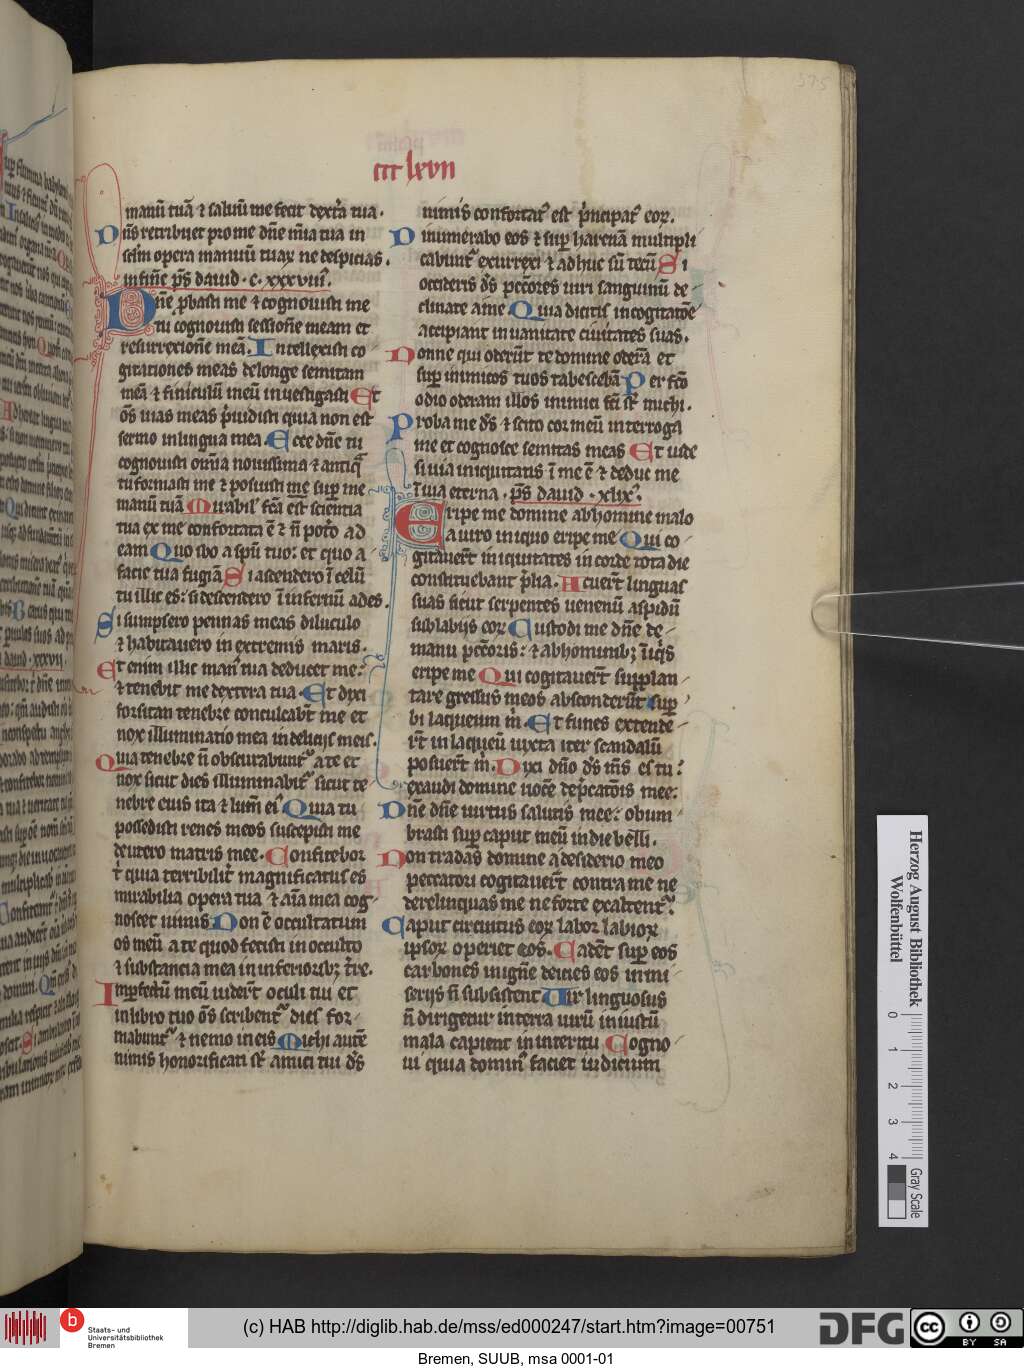 ccc lxvii
375
manū tuā ⁊ saluū me fecit dext̄a tua.
Dn̄s retribuet pro me dn̄e mīa tua in
sclm opera manuū tuaꝝ ne despicias.
in fine ps̄ dauid · c · xxxviii.
Dn̄e ꝓbasti me ⁊ cognouisti me
tu cognouisti sessionē meam et
resurrexionē meā. Intellexisti co
gitationes meas de longe semitam
meā ⁊ funiculū meū inuestigasti Et
om̄s uias meas p̄uidisti quia non est
sermo in lingua mea. Ecce dn̄e tu
cognouisti om̄ia nouissima ⁊ antiq̄
tu formasti me ⁊ posuisti me suꝑ me
manū tuā Mirabil' fc̄ā est scientia
tua ex me confortata ē ⁊ n̄ pot̄o ad
eam Quo ibo a sp̄u tuo: et quo a
facie tua fugiā Si ascendero ī celū
tu illic es: si descendero ī infernū ades.
Si sumpsero pennas meas diluculo
⁊ habitauero in extremis maris.
Et enim illic man' tua deducet me:
⁊ tenebit me dextera tua. Et dixi
forsitan tenebre conculcabt̄ me et
nox illuminatio mea in delicijs meis.
Quia tenebre n̄ obscurabunt' a te et
nox sicut dies illuminabit' sicut te
nebre eius ita ⁊ lum̄ ei' Quia tu
possedisti renes meos suscepisti me
de utero matris mee. Confitebor
t̄ quia terribilit̄ magnificatus es
mirabilia opera tua ⁊ aīa mea cog
noscet nimis Non ē occultatum
os meū a te quod fecisti in occulto
⁊ substancia mea in inferioribꝫ t̄re.
Imꝑfectū meū uidert̄ oculi tui et
in libro tuo om̄s scribent' dies for
mabunt' ⁊ nemo in eis Michi autē
nimis honorificati st̄ amici tui ds̄
nimis confortat' est p̄ncipat' eoꝝ.
Dinumerabo eos ⁊ suꝑ harenā multipli
cabunt' exurrexi ⁊ adhuc sū tecū Si
occideris ds̄ pccōres uiri sanguinū de
clinate a me. Quia dicitis in cogitatōe
accipiant in uanitate ciuitates suas.
Nonne qui oderūt te domine oderā et
suꝑ inimicos tuos tabescebā Perfc̄o
odio oderam illos inimici fc̄i st̄ michi.
Proba me ds̄ ⁊ scito cor meū interroga
me et cognosce semitas meas Et uide
si uia iniquitatis ī me ē ⁊ deduc me
ī uia eterna. ps̄ dauid · xlix.
Eripe me domine ab homine malo
a uiro iniquo eripe me Qui co
gitauert̄ iniquitates in corde tota die
constituebant p̄lia. Acuert̄ linguas
suas sicut serpentes uenenū aspidū
sub labijs eoꝝ Custodi me dn̄e de
manu pccōris: ⁊ ab hominibꝫ īiq̄s
eripe me Qui cogitauert̄ supplan
tare gressus meos absconderūt suꝑ
bi laqueum m̄. Et funes extende
rt̄ in laqueū iuxta iter scandalū
posuert̄ m̄. Dixi dn̄o ds̄ ms̄ es tu:
exaudi domine uocē dep̄catōis mee:
Dn̄e dn̄e uirtus salutis mee: obum
brasti suꝑ caput meū in die belli.
Non tradas domine a desiderio meo
peccatori cogitauert̄ contra me ne
derelinquas me ne forte exaltent'.
Caput circuitus eoꝝ labor labioꝝ
ipsoꝝ operiet eos. Cadēt suꝑ eos
carbones in ignē deicies eos in mi
serijs n̄ subsistent Uir linguosus
n̄ dirigetur in terra uirū iniustū
mala capient in interitu Cogno
ui quia domin' faciet iudicium
Herzog August Bibliothek
Wolfenbüttel
0 1 2 3 4
Gray Scale
b
Staats- und
Universitätsbibliothek
Bremen
(c) HAB http://diglib.hab.de/mss/ed000247/start.htm?image=00751
DFG
cc BY SA
Bremen, SUUB, msa 0001-01